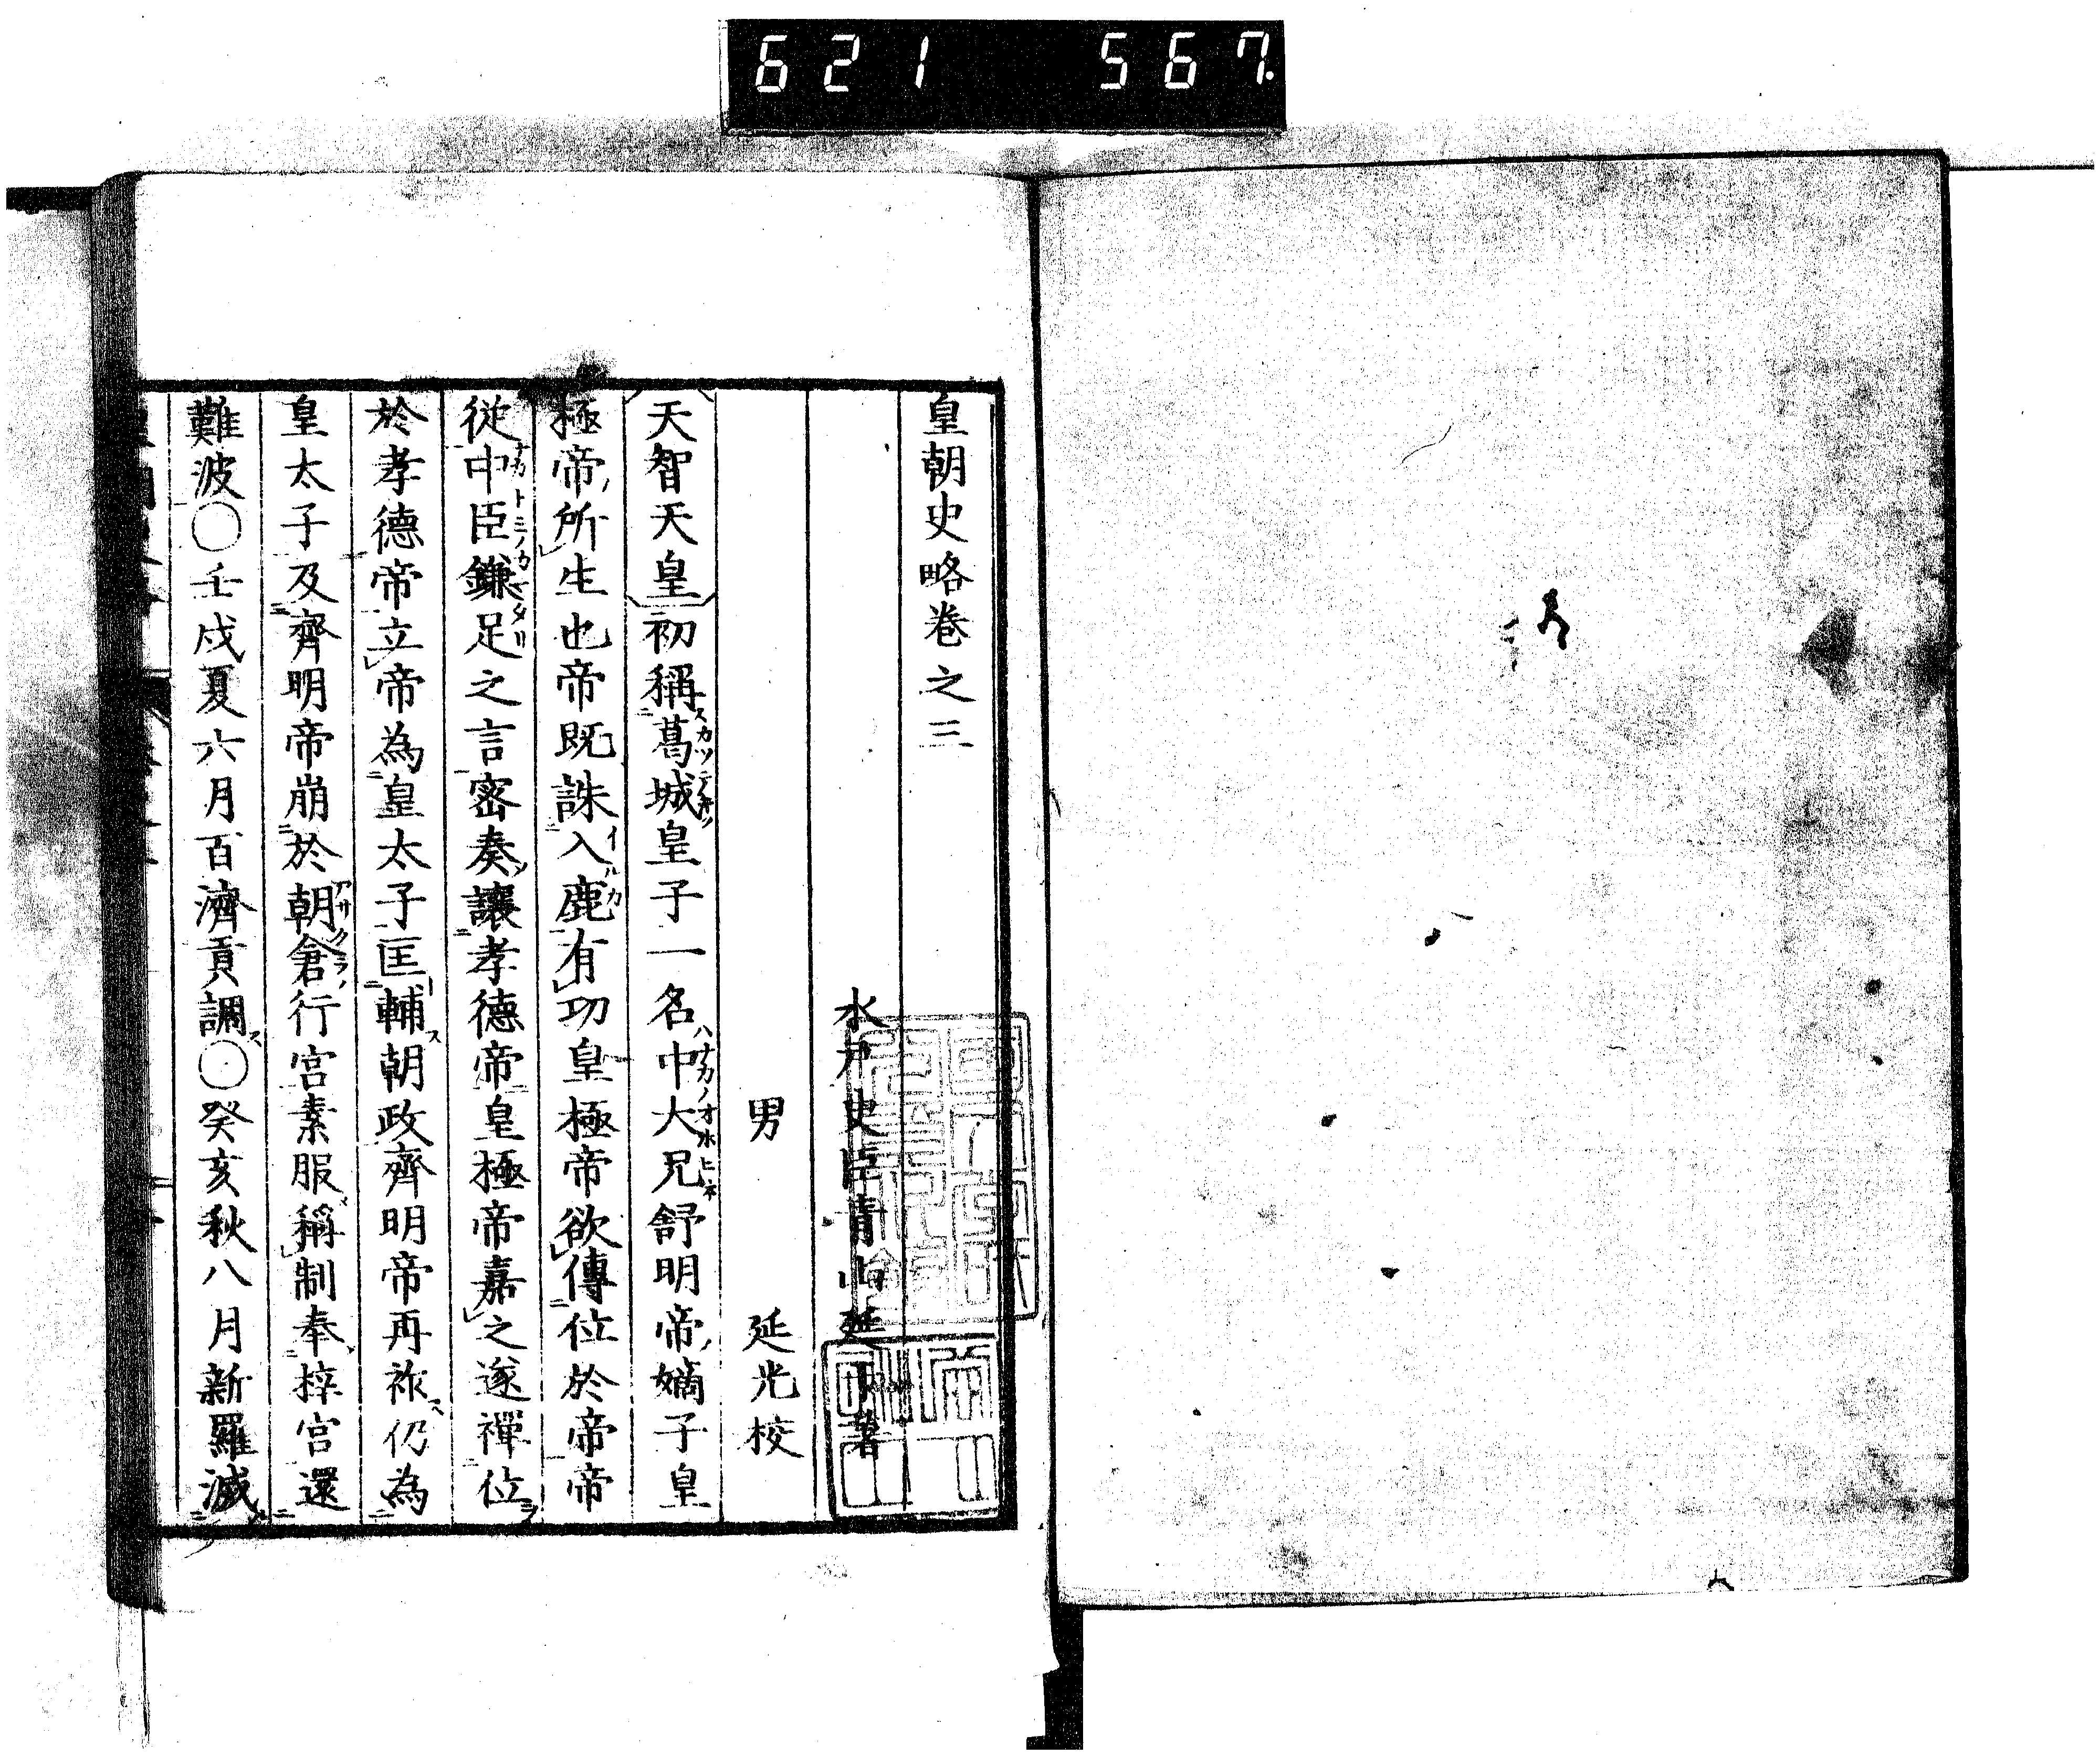 621 567.
皇朝史略巻之三
水戸史臣青山延于著
男 延光校
天智天皇初稱葛城皇子一名中大兄舒明帝嫡子皇
極帝所生也帝既誅入鹿有功皇極帝欲傳位於帝帝
從中臣鎌足之言密奏讓孝德帝皇極帝嘉之遂禪位
於孝德帝立帝為皇太子匡輔朝政齊明帝再祚仍為
皇太子及齊明帝崩於朝倉行宮素服稱制奉梓宮還
難波○壬戌夏六月百濟貢調○癸亥秋八月新羅滅